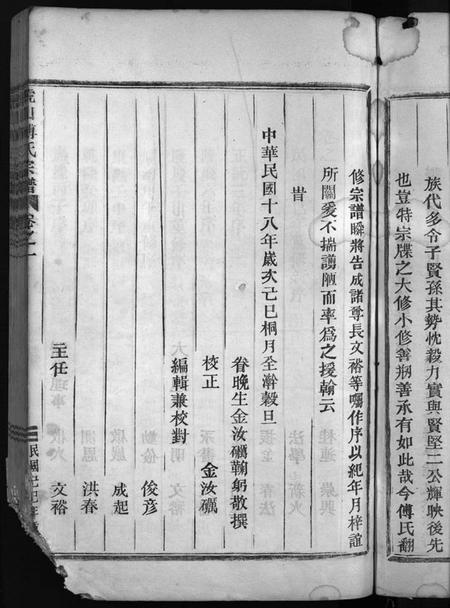 族代多令子賢孫其勢忱毅力實與賢堅二公輝映後先
也豈特宗牒之大修小修善剏善承有如此哉今傅氏翻
修宗譜瞬將告成諸尊長文裕等囑作序以紀年月梓誼
所關爰不揣譾陋而率為之援翰云
旹
中華民國十八年歲次己巳桐月全澣穀旦
眷晚生金汝礪鞠躬敬撰
校正 金汝礪
編輯兼校對 俊彦
成起
洪春
主任 文裕
傅氏宗譜 卷之一
民國己巳年